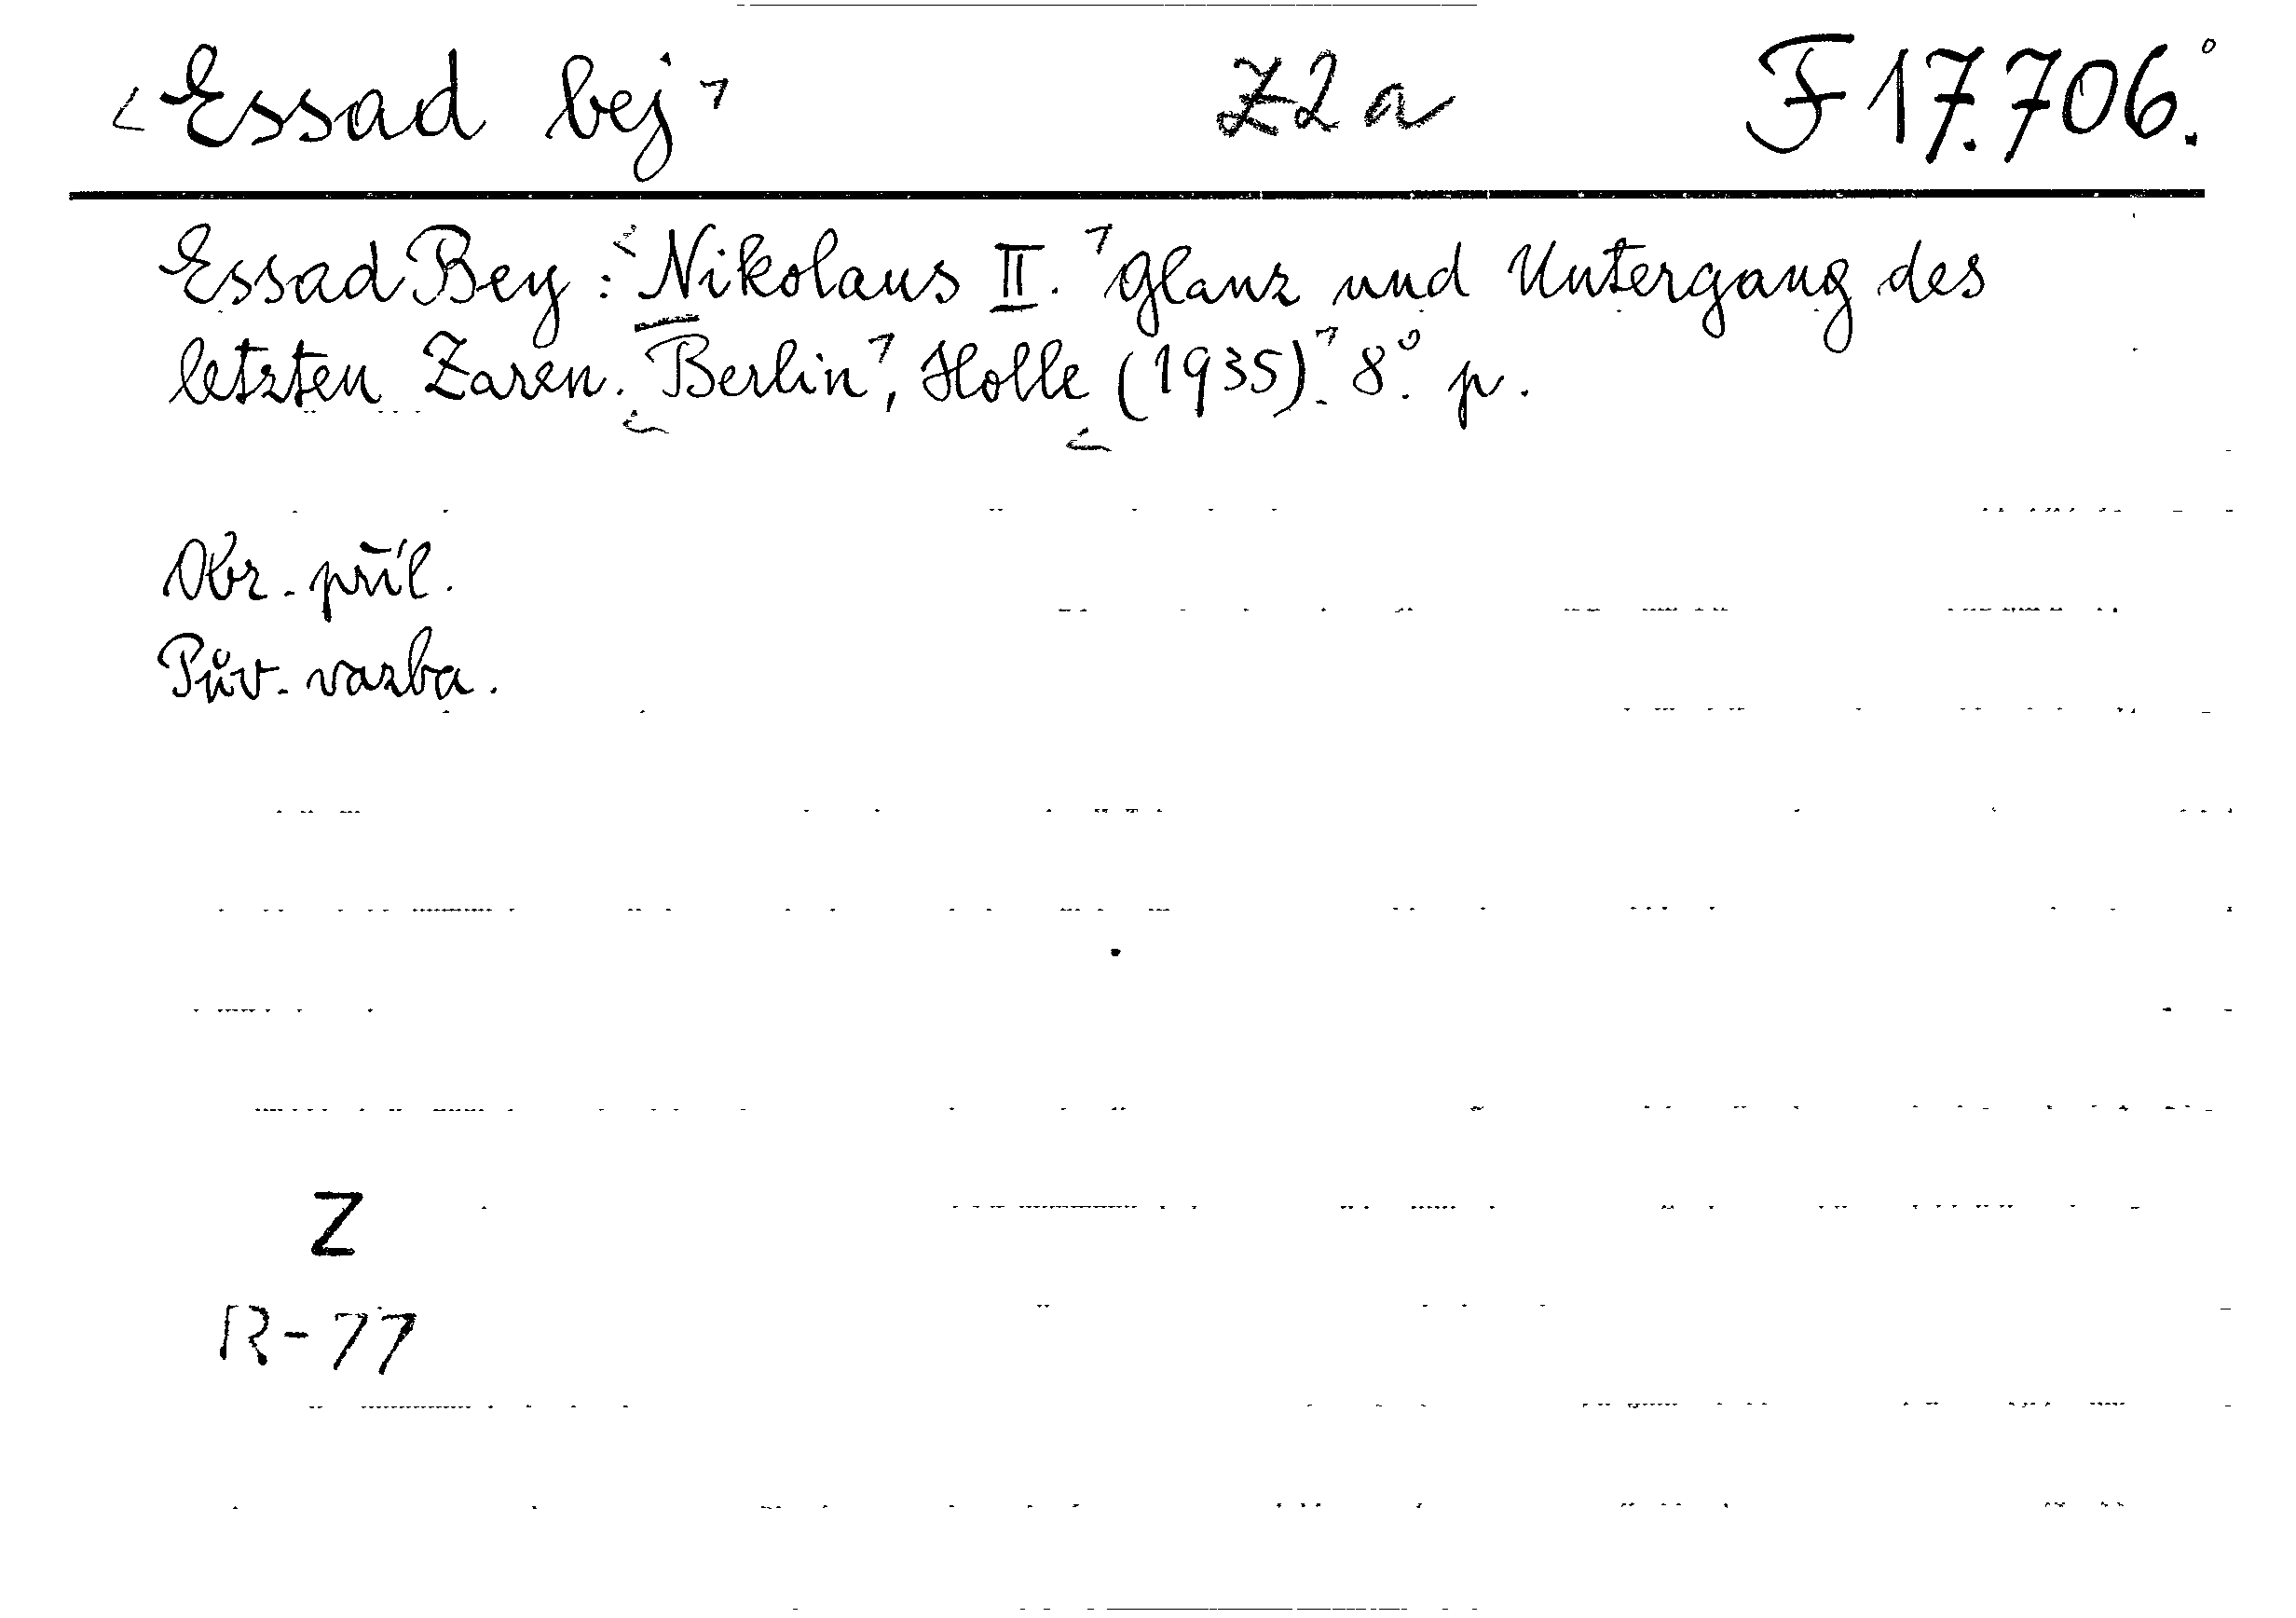 Essad bej Z2a F 17.706.°
Essad Bey: Nikolaus II. Glanz und Untergang des
letzten Zaren. Berlin, Holle (1935). 8°. p.
Obr. příl.
Pův. vazba.
Z
R-77